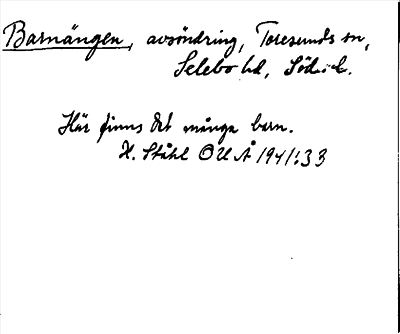 Barnängen, avsöndring, Toresunds sn,
Selebo hd, Söd. l.
Här finns det många barn.
H. Ståhl OUÅ 1941:33